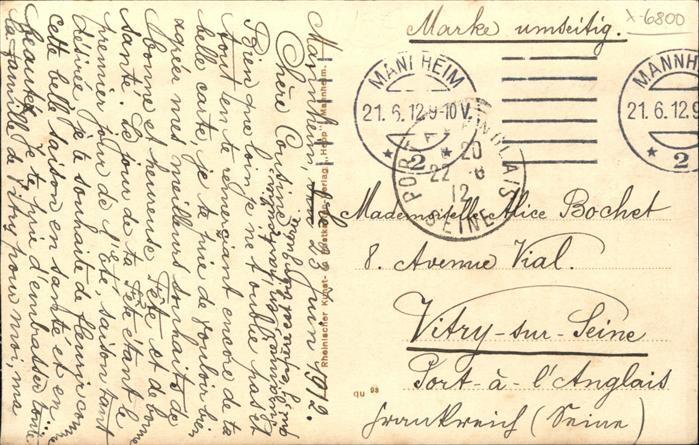 Marke umseitig.
X-6800
MANNHEIM
21.6.12.9-10V.
* 2 *
MANNH
21.6.12.9
* 2
PORT A L'ANGLAIS
* 20
22 - 6
12
SEINE
Mademoiselle Alice Bochet
8. Avenue Vial.
Vitry-sur-Seine
Port-à-l'Anglais
Frankreich (Seine)
qu 98
Rheinischer Kunst- Verlag „Hepp" Mannheim.
Mannheim, le 23 Juin 1912.
Chère Cousine
Bien que loin je ne t'oublie pas et
tout en te remerçiant encore de ta
belle carte, je te prie de vouloir bien
agréer mes meilleurs souhaits de
bonne et heureuse Fête et de bonne
santé. Le jour de ta Fête étant le
premier jour de l'Eté, saison tant
désirée je te souhaite de fleurir comme
cette belle saison en santé et en
beauté. Je te prie d'embrasser toute
la famille de Vitry pour moi, ma